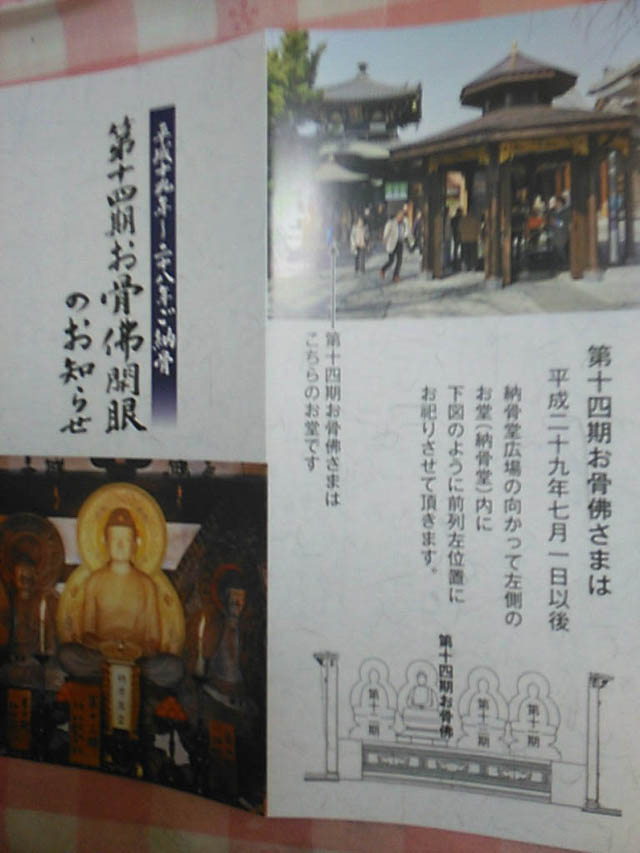 平成十九年〜二十八年ご納骨
第十四期お骨佛開眼
のお知らせ
第十四期お骨佛さまは
こちらのお堂です
第十四期お骨佛さまは
平成二十九年七月一日以後
納骨堂広場の向かって左側の
お堂(納骨堂)内に
下図のように前列左位置に
お祀りさせて頂きます。
第十四期お骨佛
第十三期
第十一期